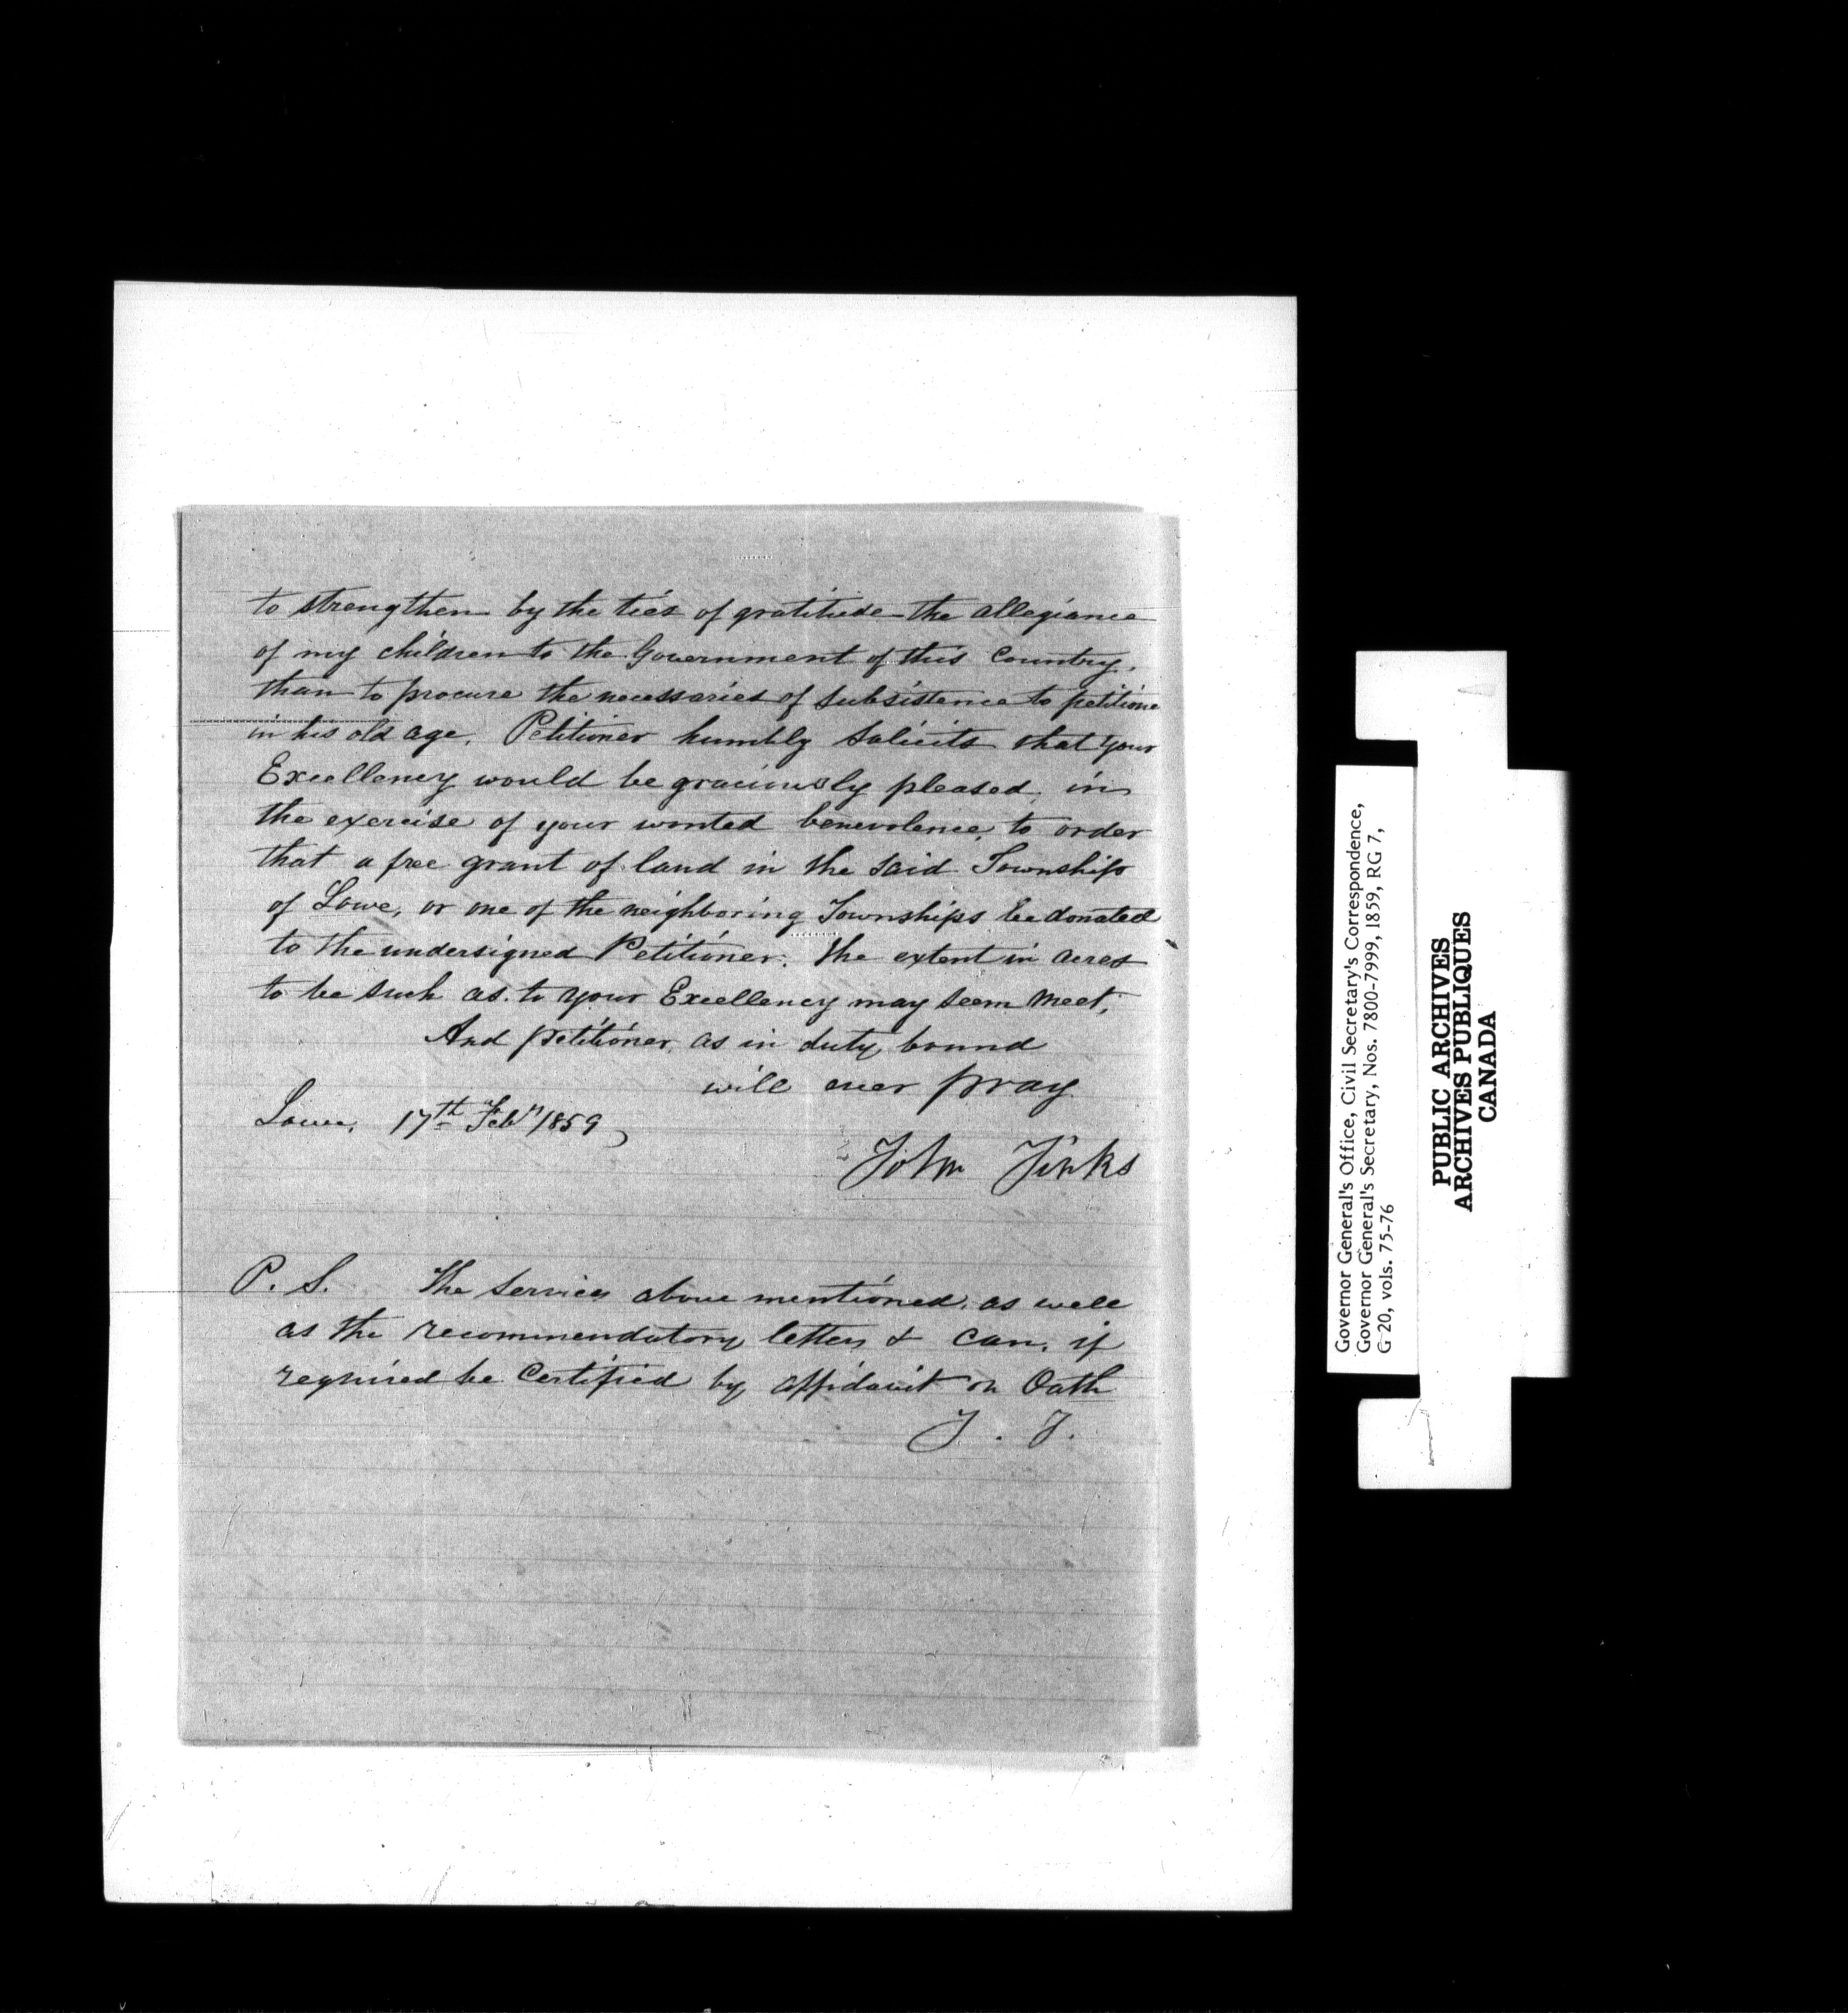 to strengthen by the ties of gratitude the allegiance
of my children to the Government of this Country,
than to procure the necessaries of subsistence to petitione
in his old age. Petitioner humbly Solicits that your
Excellency would be graciously pleased, in
the exercise of your wonted benevolence, to order
that a free grant of land in the said Township
of Lowe, or one of the neighboring Townships be donated
to the undersigned Petitioner. The extent in acres
to be such as to your Excellency may seem meet,
And petitioner, as in duty bound
will ever pray
Lowe, 17th Feby 1859
John
P. S. The Services above mentioned, as well
as the recommendatory letters & can, if
required be Certified by affidavit on Oath
Governor General's Office, Civil Secretary's Correspondence,
Governor General's Secretary, Nos. 7800-7999, 1859, RG 7,
G 20, vols. 75-76
PUBLIC ARCHIVES
ARCHIVES PUBLIQUES
CANADA